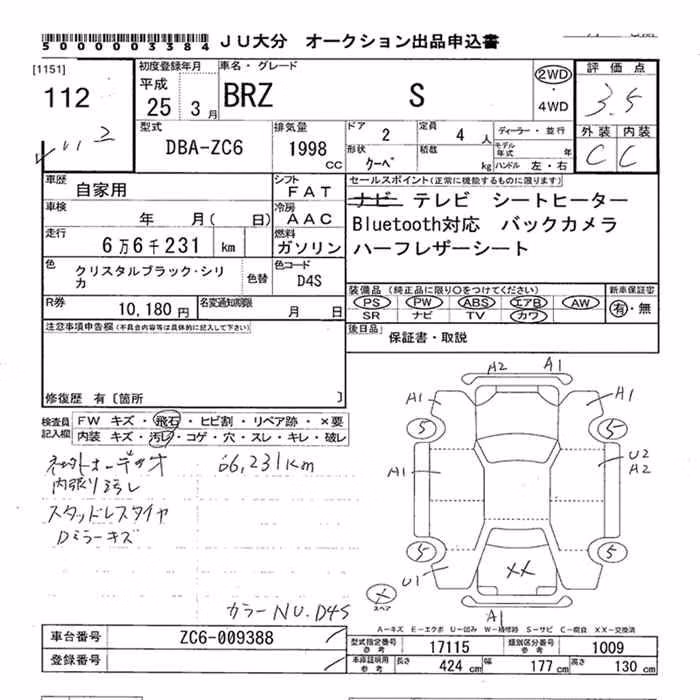 5000003384 JU大分 オークション出品申込書
[1151]
112
初度登録年月
平成
25 3月
車名・グレード
BRZ S
2WD
・
4WD
評価点
3.5
外装 内装
C C
型式
DBA-ZC6
排気量
1998 CC
ドア 2
定員 4人
ディーラー・並行
形状 クーペ
積載 kg
モデル年式 年
ハンドル 左・右
車歴 自家用
シフト FAT
車検 年 月( 日)
冷房 AAC
走行 6万6千231 km
燃料 ガソリン
色 クリスタルブラック・シリカ
色替
色コード D4S
R券 10,180円
名変通知期限 月 日
セールスポイント(正常に機能するものに限ります)
ナビ テレビ シートヒーター
Bluetooth対応 バックカメラ
ハーフレザーシート
装備品 (純正品に限り○をつけてください)
PS PW ABS エアB AW
SR ナビ TV カワ
新車保証書
有・無
後日品
保証書・取説
注意事項申告欄(不具合内容等は具体的に記入して下さい)
修復歴 有〔箇所 〕
検査員記入欄
FW キズ・飛石・ヒビ割・リペア跡・×要
内装 キズ・汚レ・コゲ・穴・スレ・キレ・破レ
66,231km
内張り汚レ
スタッドレスタイヤ
Dミラーキズ
カラーNU.D4S
A2 A1
A1 A1
5 5
A1 U2
A2
5 5
U1 XX
×
スペア
A1
A-キズ E-エクボ U-凹み W-補修跡 S-サビ C-腐食 XX-交換済
車台番号 ZC6-009388
登録番号
型式指定番号 参考 17115
類別区分番号 参考 1009
車庫証明用 参考 長さ 424 cm 幅 177 cm 高さ 130 cm